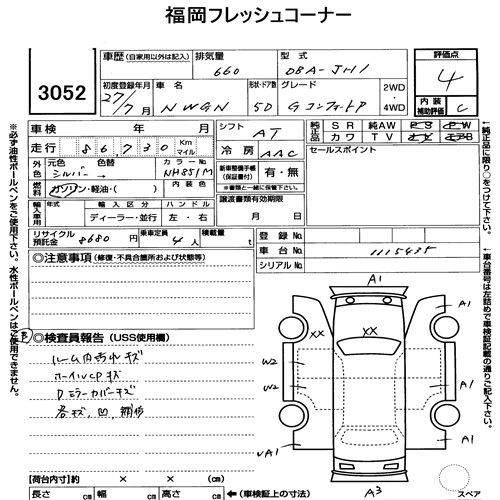 福岡フレッシュコーナー
3052
車歴(自家用以外は記入) 排気量 型式 評価点
660 DBA-JH1 4
初度登録年月 車名 形状・ドア数 グレード 2WD・4WD
27/7月 NWGN 5D G コンフォートP
内装補助評価 C
車検 年 月 シフト AT
純正品 SR 純AW PS PW
カワ TV ナビ エアB
走行 86,730 Km マイル 冷房 AAC
セールスポイント
外色 元色 色替 カラーNo.
シルバー → NH851M
新車整備手帳(保証書付) 有・無
※書類と一緒に保管下さい。
燃料 ガソリン・軽油・( ) 内装色
輸入車用 年式 輸入区分 ハンドル 譲渡書類有効期限
ディーラー・並行 左・右 月 日
リサイクル預託金 8680円 乗車定員 4人 積載量 t
登録No.
車台No. 1115435
シリアルNo.
◎注意事項(修復・不具合箇所および状態等)
◎検査員報告(USS使用欄)
ルーム内荷中キズ
ホイールCPキズ
Dミラーカバーキズ
各キズ、凹、補修
A1
A1
XX
XX
A1
W2
W2
A1
A3
スペア
【荷台内寸】約 × × (cm)
長さ cm 幅 cm 高さ cm ←(車検証上の寸法)
※必ず油性ボールペンをご使用下さい。水性ボールペンはご使用出来ません。
←純正品に限り○をつけて下さい。
←車台番号は左詰めで車検証記載の通りご記入下さい。